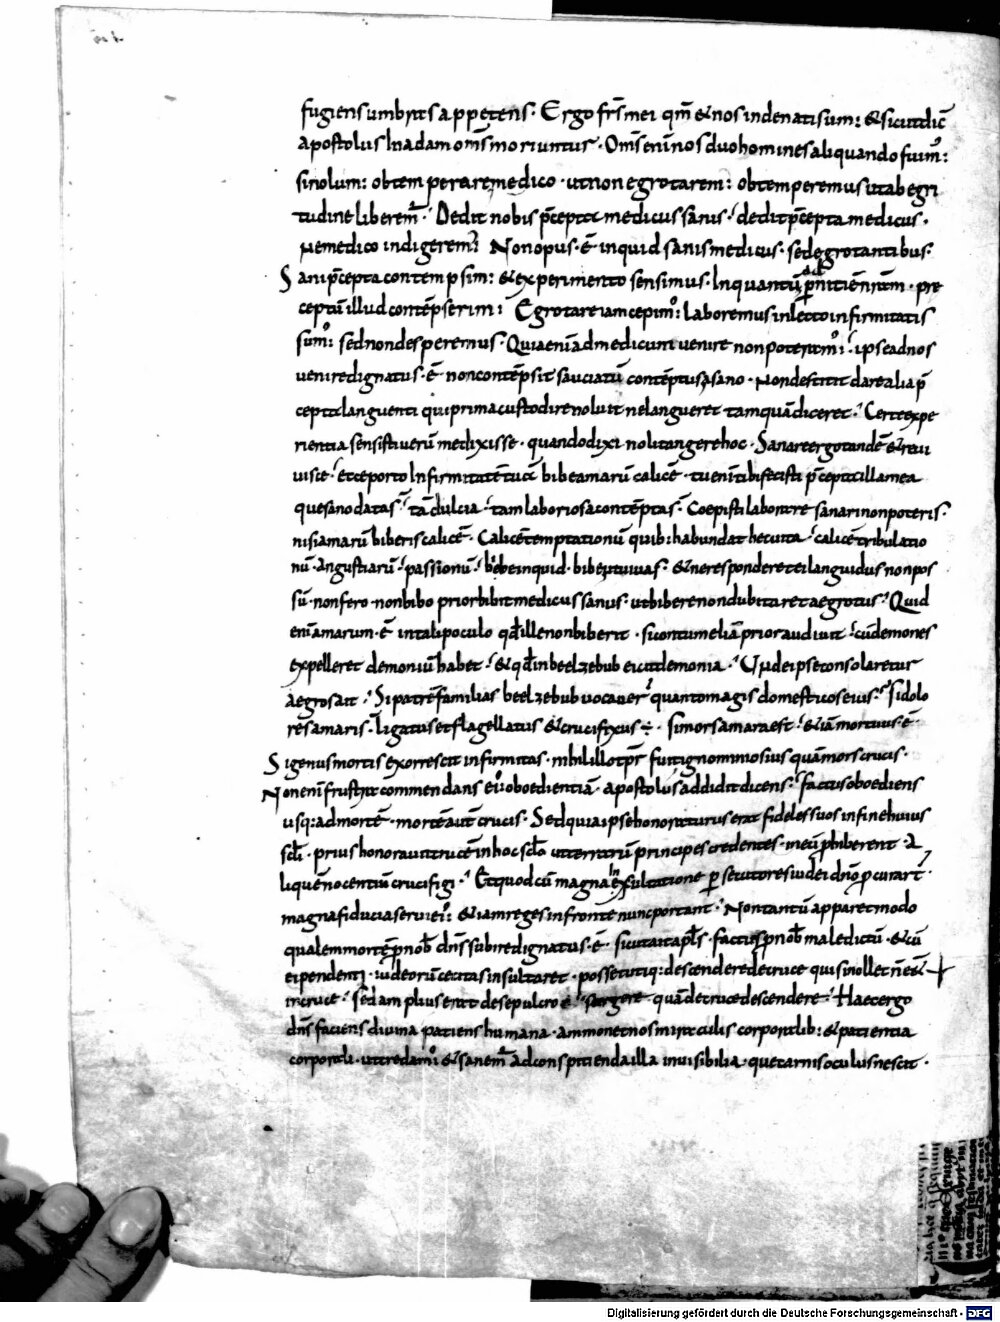 fugiens umbras appetens · Ergo frs̄ mei qm̄ & nos inde nati sum: & sicut dic̄
apostolus In adam om̄s moriuntur · Om̄s enī nos duo homines aliquando fuim̄:
si nolum: obtemperare medico · ut non egrotarem: obtemperemus ut ab egri
tudine liberem̄ · Dedit nobis p̄cepta medicus sanis · dedit p̄cepta medicus ·
ne medico indigerem̄ Non opus · ē inquid sanis medicus · sed egrotantibus ·
Sani p̄cepta contempsim: & experimento sensimus · In quantū
ceptū illud contēpserim: Egrotare iam cepim: laboremus in lecto infirmitatis
sum: sed non desperemus · Quia enī ad medicum venire non poteram: ipse ad nos
venire dignatus · ē non contēpsit sauciatū contēptus a sano · Non destitit dare alia p̄
cepta languenti qui prima custodire noluit ne langueret tamquā diceret · Certe expe
rientia sensisti verū me dixisse · quando dixi noli tangere hoc · Sanare ergo tandē & reui
uisce · Ecce porto Infirmitatē tuā bibe amarū calicē · tu enī tibi fecisti p̄cepta illa mea
que sano data s̄ tā dulcia tam laboriosa contēptas · Coepisti laborare sanari non poteris ·
nisi amarū biberis calicē · Calicē temptationū quib: habundat hec uita calicē tribulatio
nū · angustiarū passionū bibe inquid · bibe ut uiuas · & ne responderet ei languidus non pos
sū · non fero · non bibo prior bibit medicus sanus · ut bibere non dubitaret aegrotus · Quid
enī amarum · ē in tali poculo qd̄ ille non biberit · Si contumelia prior audiuit cū demones
expelleret demoniū habet & qd̄ in beelzebub eicit demonia · Unde ipse consolaretur
aegros ait · Si patrē familias beelzebub uocauer quanto magis domesticos eius · Si dolo
res amaris · ligatus et flagellatus & crucifixus ÷ · Si mors amara est & iā mortuus · ē ·
Si genus mortis exorrescit infirmitas · nihil illo tp̄r fuit ignominiosius quā mors crucis ·
Non enī frustra commendans ei: oboedientiā · apostolus addidit dicens · factus oboediens
usq: ad mortē · mortē aut̄ crucis · Sed quia ipse honoraturus erat fideles suos in fine huius
scl̄i · prius honorauit crucē in hoc scl̄o ut terrarū principes credentes · in eū phiberent · a
liquē nocentiū crucifigi · Et quod cū magna insultatione persecutores iudei dn̄o p curar̄t ·
magna fiducia serui ei: & iam reges in fronte nunc portant · Non tantū apparet modo
qualem mortē p nob̄ dn̄s subire dignatus · ē · sicut ait apl̄s · factus p nob̄ maledictū · & cū
ei pendenti · iudeorū cecitas insultaret · posset utiq: descendere de cruce qui si nollet n̄ eēt
in cruce sed amplius erat de sepulcro surgere · quā de cruce descendere Haec ergo
dn̄s faciens diuina patiens humana · ammonet nos miraculis corporalib: & patientia
corporali · ut credam: & sanem̄ ad conspitienda illa inuisibilia · que carnis oculus nescit ·
Digitalisierung gefördert durch die Deutsche Forschungsgemeinschaft - DFG